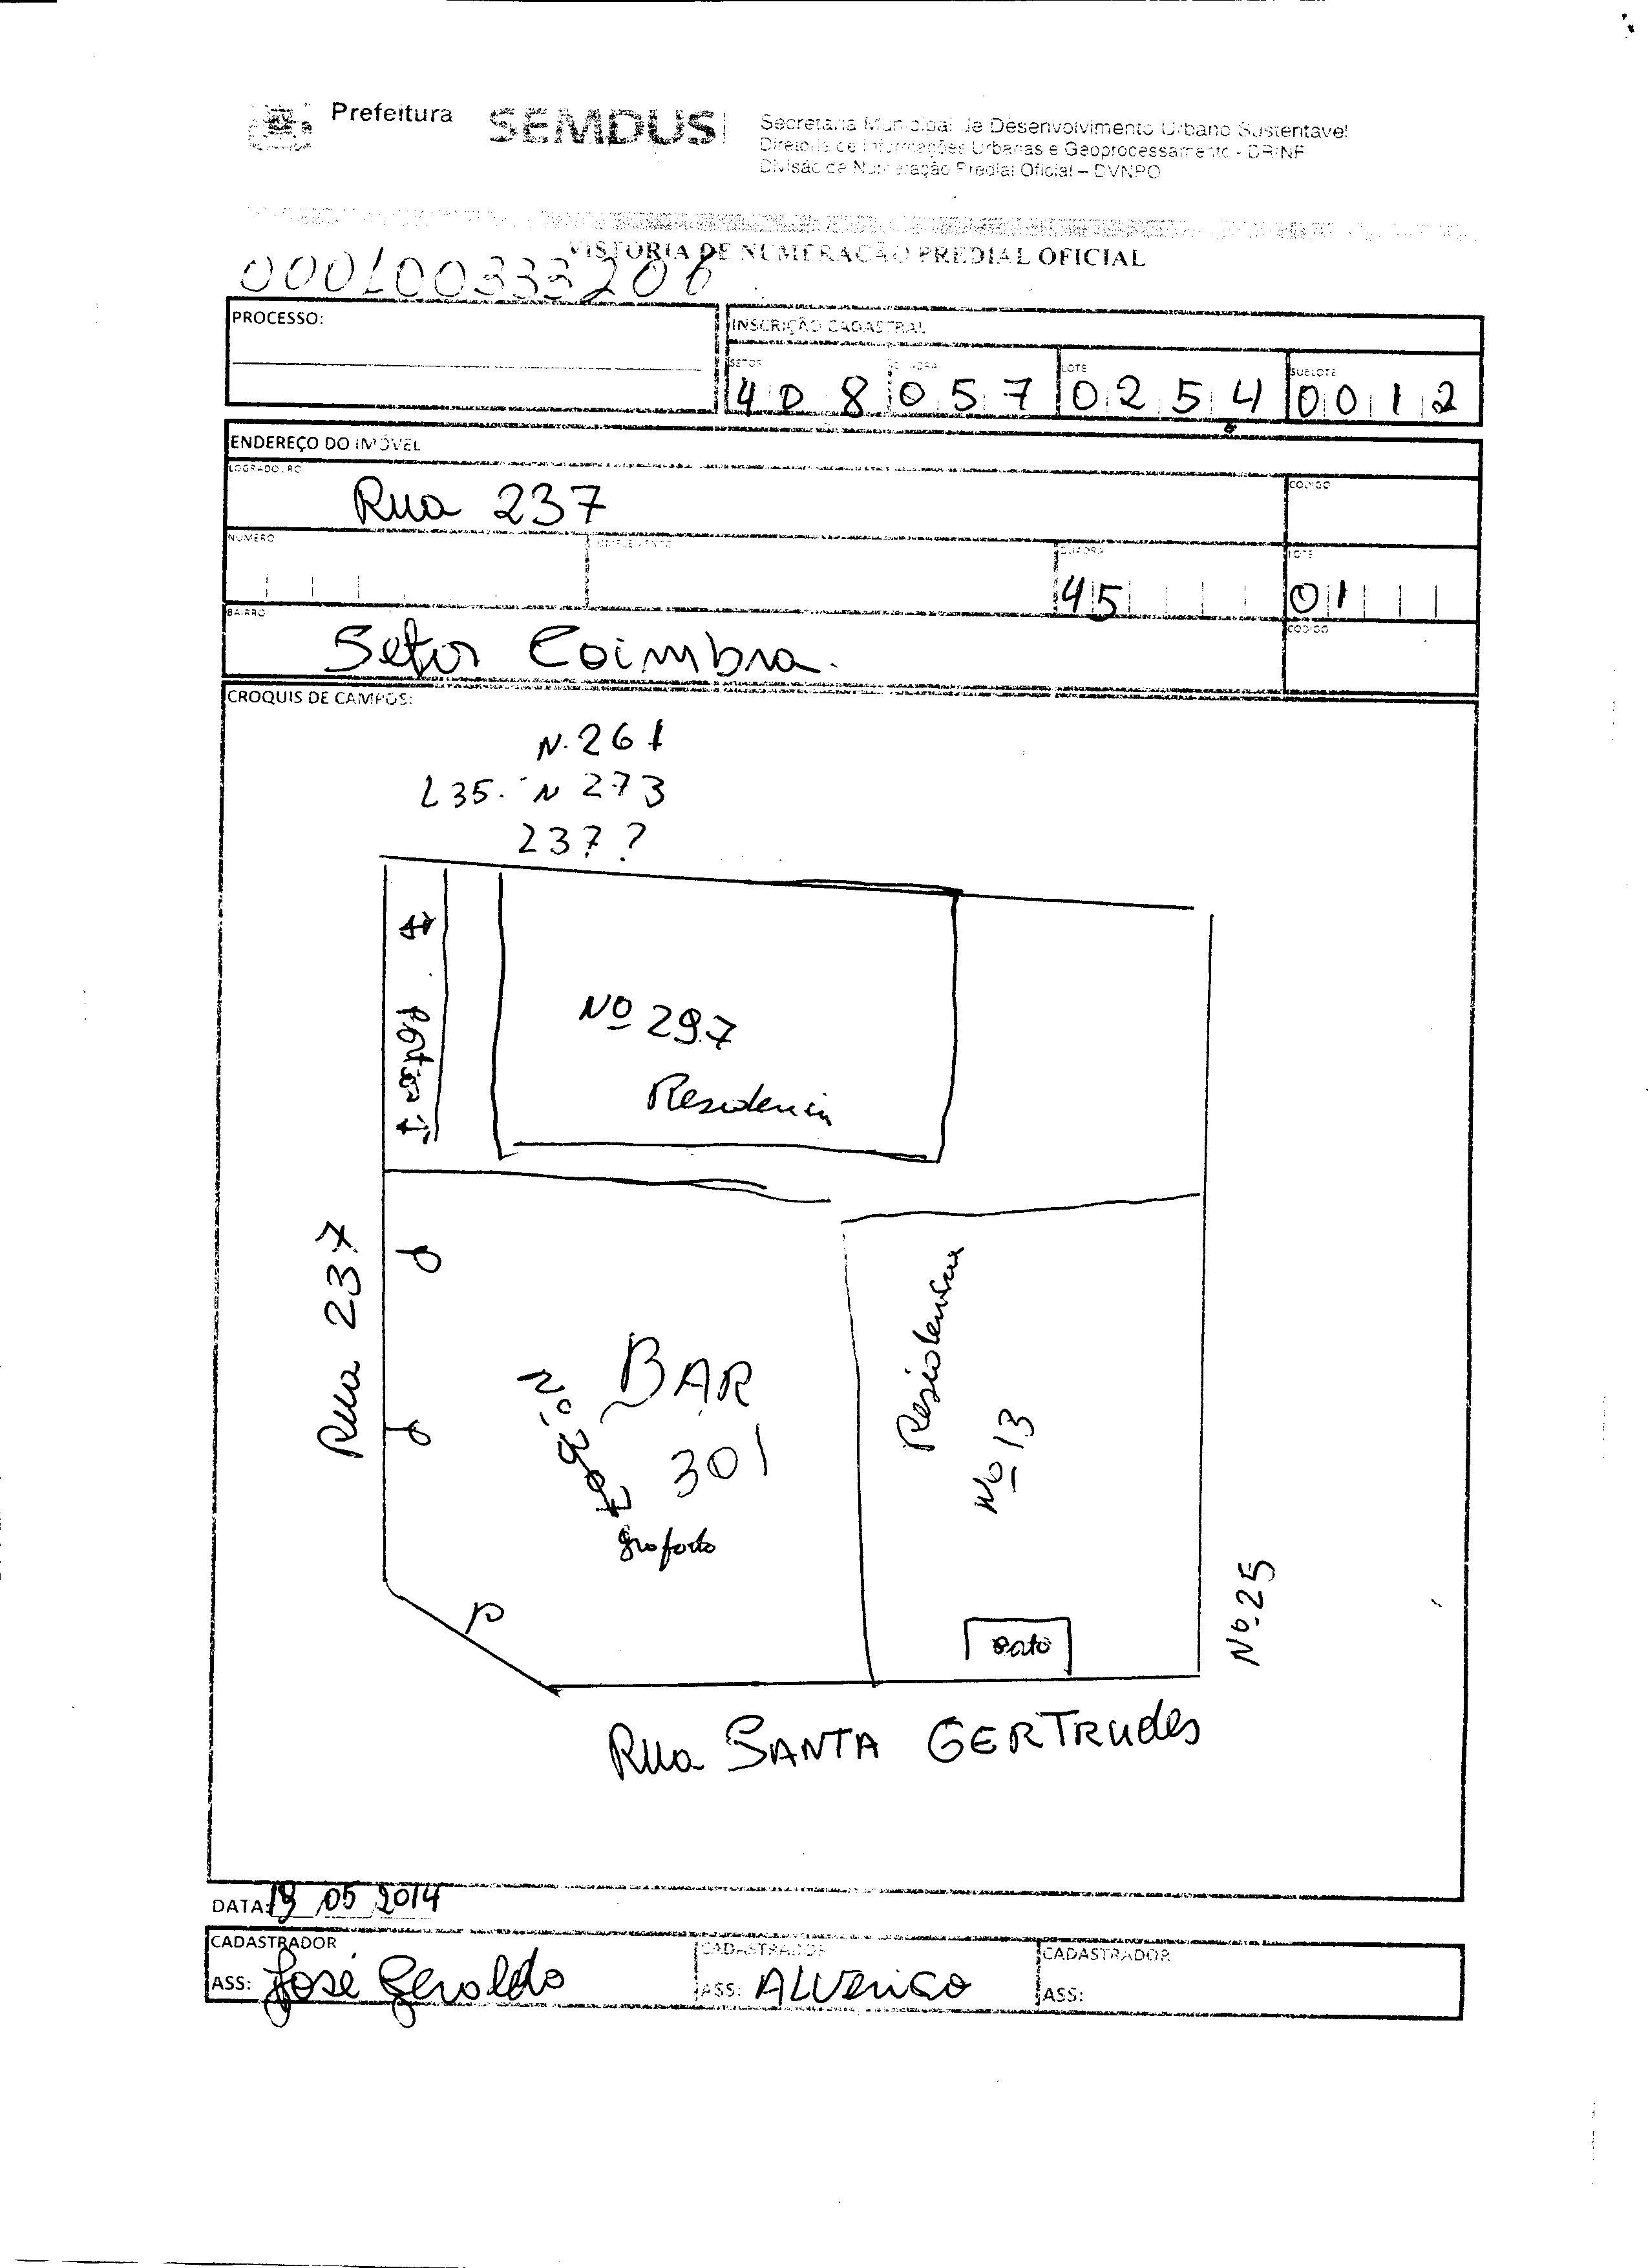 Prefeitura SEMDUS
Secretaria Municipal de Desenvolvimento Urbano Sustentável
Diretoria de Informações Urbanas e Geoprocessamento - DRINF
Divisão de Numeração Predial Oficial – DVNPO
VISTORIA DE NUMERAÇÃO PREDIAL OFICIAL
000100333206
PROCESSO:
INSCRIÇÃO CADASTRAL
SETOR QUADRA LOTE SUBLOTE
408 057 0254 0012
ENDEREÇO DO IMÓVEL
LOGRADOURO CÓDIGO
Rua 237
NÚMERO COMPLEMENTO QUADRA LOTE
45 01
BAIRRO CÓDIGO
Setor Coimbra.
CROQUIS DE CAMPOS:
N. 261
L 35. N 273
237?
Nº 297
Residencia
Rua 237
BAR
301
Nº
Residencia
Nº 13
Nº 25
Rua SANTA GERTRudes
DATA: 19 05 2014
CADASTRADOR CADASTRADOR CADASTRADOR
ASS: José Geraldo ASS: ALVerico ASS: